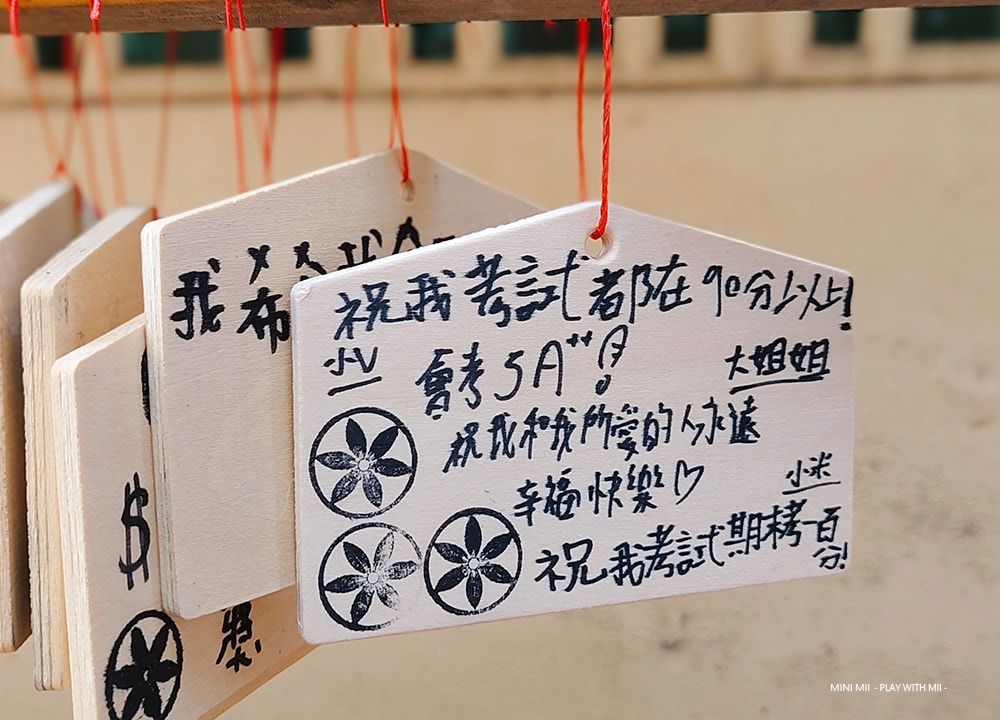 祝我考試都在90分以上!
小V
會考5A++
大姐姐
祝我和我所愛的人永遠
幸福快樂♡
小米
祝我考試期末考一百
分!
我
布
$
獎
MINI MII - PLAY WITH MII -